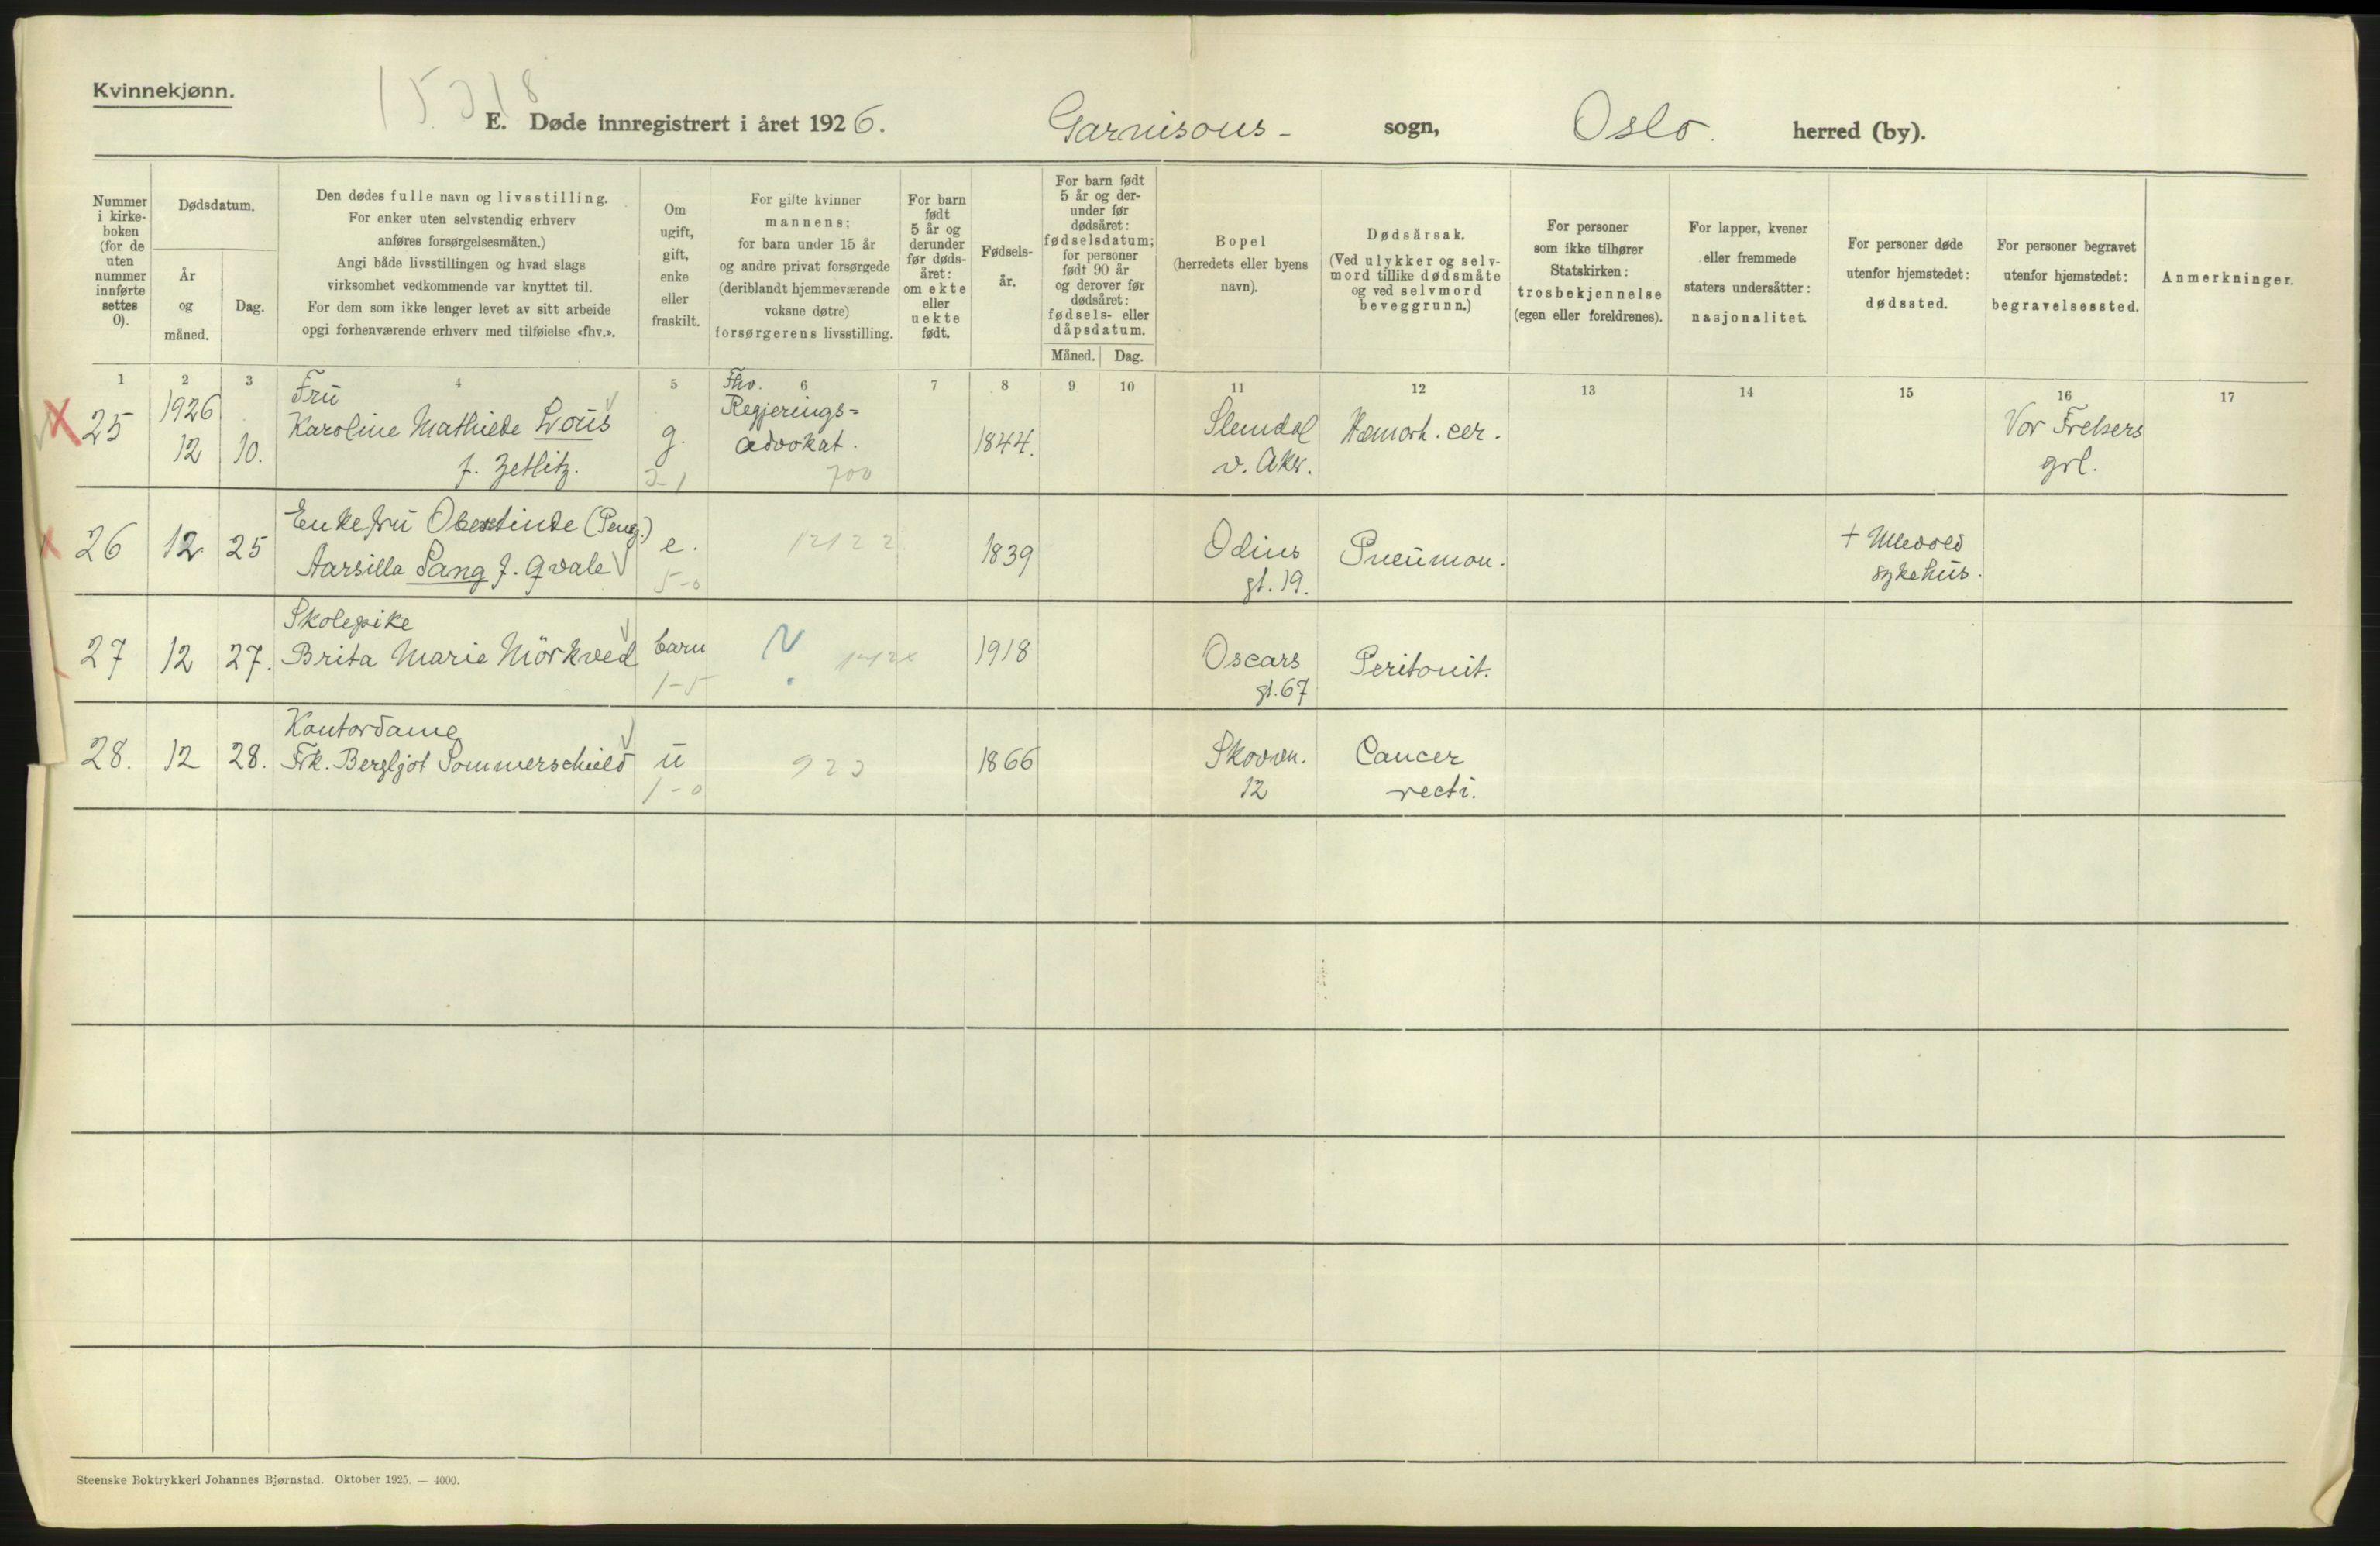 Kvinnekjønn.
E. Døde innregistrert i året 1926. Garnisons- sogn, Oslo. herred (by).
Nummer i kirke-boken (for de uten nummer innførte settes 0).
Dødsdatum.
År og måned.
Dag.
Den dødes fulle navn og livsstilling.
For enker uten selvstendig erhverv
anføres forsørgelsesmåten.)
Angi både livsstillingen og hvad slags
virksomhet vedkommende var knyttet til.
For dem som ikke lenger levet av sitt arbeide
opgi forhenværende erhverv med tilføielse «fhv.».
Om ugift, gift, enke eller fraskilt.
For gifte kvinner
mannens;
for barn under 15 år
og andre privat forsørgede
(deriblandt hjemmeværende
voksne døtre)
forsørgerens livsstilling.
For barn født 5 år og derunder før døds-året: om ekte eller uekte født.
Fødsels-år.
For barn født 5 år og der-under før dødsåret: fødselsdatum; for personer født 90 år og derover før dødsåret: fødsels- eller dåpsdatum.
Måned. Dag.
Bopel
(herredets eller byens
navn).
Dødsårsak.
(Ved ulykker og selv-
mord tillike dødsmåte
og ved selvmord
beveggrunn.)
For personer
som ikke tilhører
Statskirken:
trosbekjennelse
(egen eller foreldrenes).
For lapper, kvener
eller fremmede
staters undersåtter:
nasjonalitet.
For personer døde
utenfor hjemstedet:
dødssted.
For personer begravet
utenfor hjemstedet:
begravelsessted.
Anmerkninger.
1 2 3 4 5 6 7 8 9 10 11 12 13 14 15 16 17
1926 Fru Fhv.
25 12 10. Karoline Mathilde Lous g. Regjerings= 1844. Slemdal Hæmorh. cer. Vor Frelsers
f. Zetlitz. advokat. 700 v. Aker. grl.
26 12 25 Enkefru (Peng.) e. 12122 1839 Odins Pneumon. + Ullevold
Lang f. Qvale 5-0 gt. 19. sykehus.
Skolepike
27 12 27. Brita Marie Mörkved barn 1918 Oscars Peritonit.
1-5 gt. 67
Kontordame
28. 12 28. Frk. Bergljot Sommerschield u 1866 Skovvn. Cancer
1-0 12 recti.
Steenske Boktrykkeri Johannes Bjørnstad. Oktober 1925. — 4000.